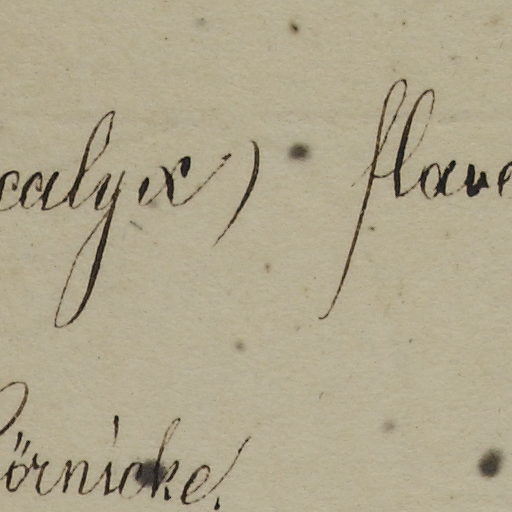 calyx) flave
örnicke.